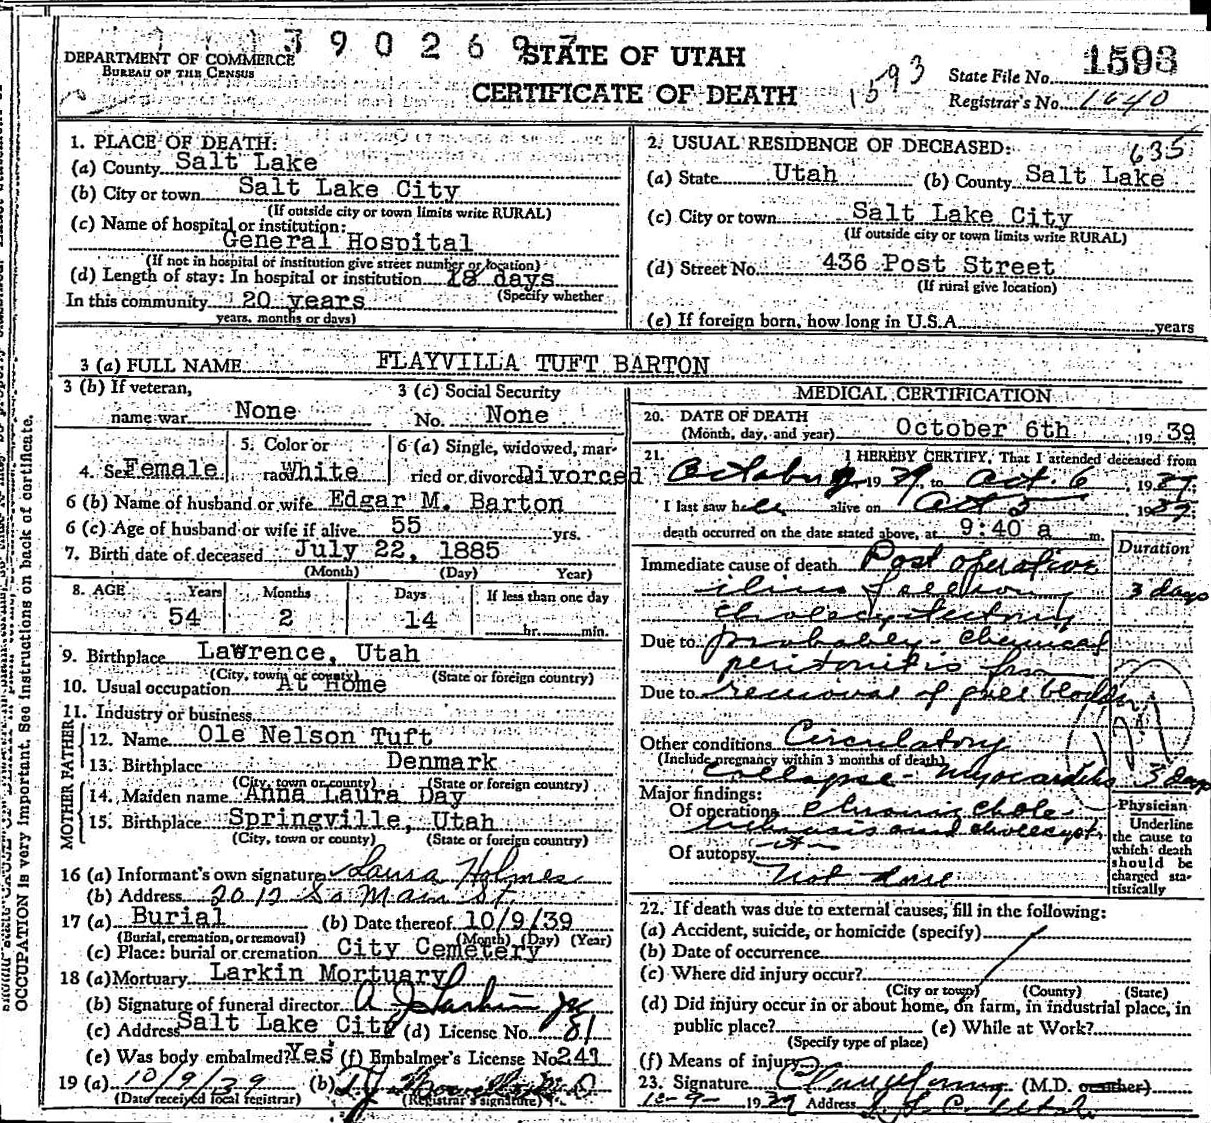 390269
DEPARTMENT OF COMMERCE
BUREAU OF THE CENSUS
STATE OF UTAH
CERTIFICATE OF DEATH
1593
State File No. 1593
Registrar's No. 1640
1. PLACE OF DEATH:
(a) County Salt Lake
(b) City or town Salt Lake City
(If outside city or town limits write RURAL)
(c) Name of hospital or institution:
General Hospital
(If not in hospital or institution give street number or location)
(d) Length of stay: In hospital or institution 18 days
In this community 20 years
(Specify whether
years, months or days)
2. USUAL RESIDENCE OF DECEASED: 635
(a) State Utah (b) County Salt Lake
(c) City or town Salt Lake City
(If outside city or town limits write RURAL)
(d) Street No. 436 Post Street
(If rural give location)
(e) If foreign born, how long in U.S.A. years
3 (a) FULL NAME FLAYVILLA TUFT BARTON
3 (b) If veteran,
name war None
3 (c) Social Security
No. None
4. Sex Female
5. Color or
race White
6 (a) Single, widowed, mar-
ried or divorced Divorced
6 (b) Name of husband or wife Edgar M. Barton
6 (c) Age of husband or wife if alive 55 yrs.
7. Birth date of deceased July 22, 1885
(Month) (Day) Year)
8. AGE Years Months Days If less than one day
54 2 14 hr. min.
9. Birthplace Lawrence, Utah
(City, town or county) (State or foreign country)
10. Usual occupation At Home
11. Industry or business
FATHER
12. Name Ole Nelson Tuft
13. Birthplace Denmark
(City, town or county) (State or foreign country)
MOTHER
14. Maiden name Anna Laura Day
15. Birthplace Springville, Utah
(City, town or county) (State or foreign country)
16 (a) Informant's own signature Laura Holmes
(b) Address 2012 So Main St.
17 (a) Burial (b) Date thereof 10/9/39
(Burial, cremation, or removal) (Month) (Day) (Year)
(c) Place: burial or cremation City Cemetery
18 (a) Mortuary Larkin Mortuary
(b) Signature of funeral director A J Larkin Jr
(c) Address Salt Lake City (d) License No. 81
(e) Was body embalmed? Yes (f) Embalmer's License No 241
19 (a) 10/9/39 (b)
(Date received local registrar) (Registrar's signature)
MEDICAL CERTIFICATION
20. DATE OF DEATH
(Month, day, and year) October 6th 19 39
21. I HEREBY CERTIFY, That I attended deceased from
October 19 39 to Oct. 6 19 39
I last saw her alive on Oct 5 19 39
death occurred on the date stated above, at 9:40 a m.
Duration
Immediate cause of death Post operative
ilius following 3 days
cholecystectomy
Due to probably - chemical
peritonitis from
Due to removal of gall bladder
127
Other conditions Circulatory
(Include pregnancy within 3 months of death)
collapse - myocarditis 3 days
Major findings:
Of operations chronic chole-
lithiasis and cholecyst
itis
Of autopsy
not done
Physician
Underline
the cause to
which death
should be
charged sta-
tistically
22. If death was due to external causes, fill in the following:
(a) Accident, suicide, or homicide (specify)
(b) Date of occurrence
(c) Where did injury occur?
(City or town) (County) (State)
(d) Did injury occur in or about home, on farm, in industrial place, in
public place? (e) While at Work?
(Specify type of place)
(f) Means of injury
23. Signature (M.D. or other)
10-9- 19 39 Address S. L. C. Utah
OCCUPATION is very important. See instructions on back of certificate.